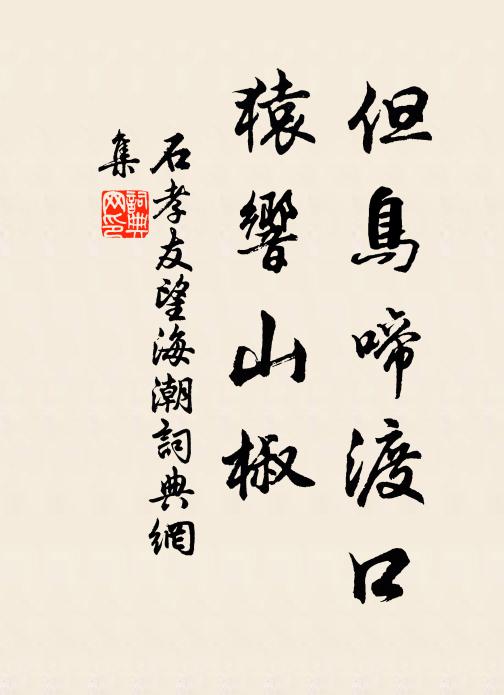 但鳥啼渡口
猿響山椒
石孝友望海潮詞典網
集
詞典
网印